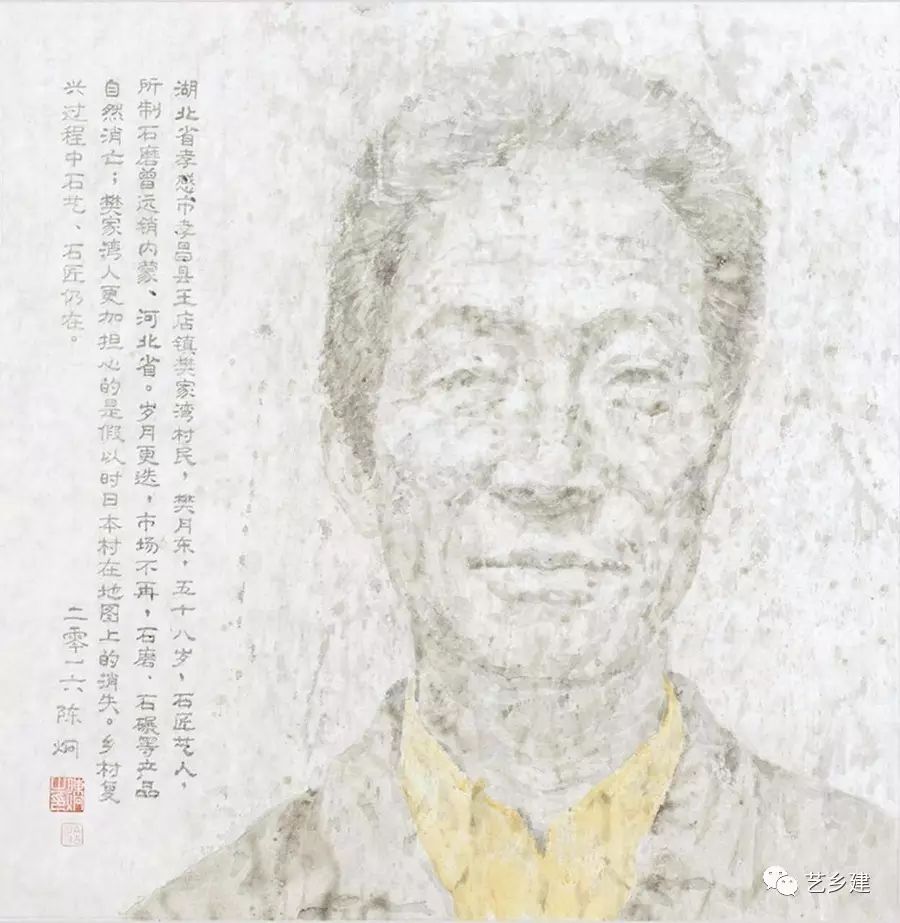 湖北省孝感市孝昌县王店镇樊家湾村民，樊月东，五十八岁，石匠艺人，
所制石磨曾远销内蒙、河北省。岁月更迭，市场不再，石磨、石碾等产品
自然消亡；樊家湾人更加担心的是假以时日本村在地图上的消失。乡村复
兴过程中石艺、石匠仍在。
二零一六 陈炯
艺乡建